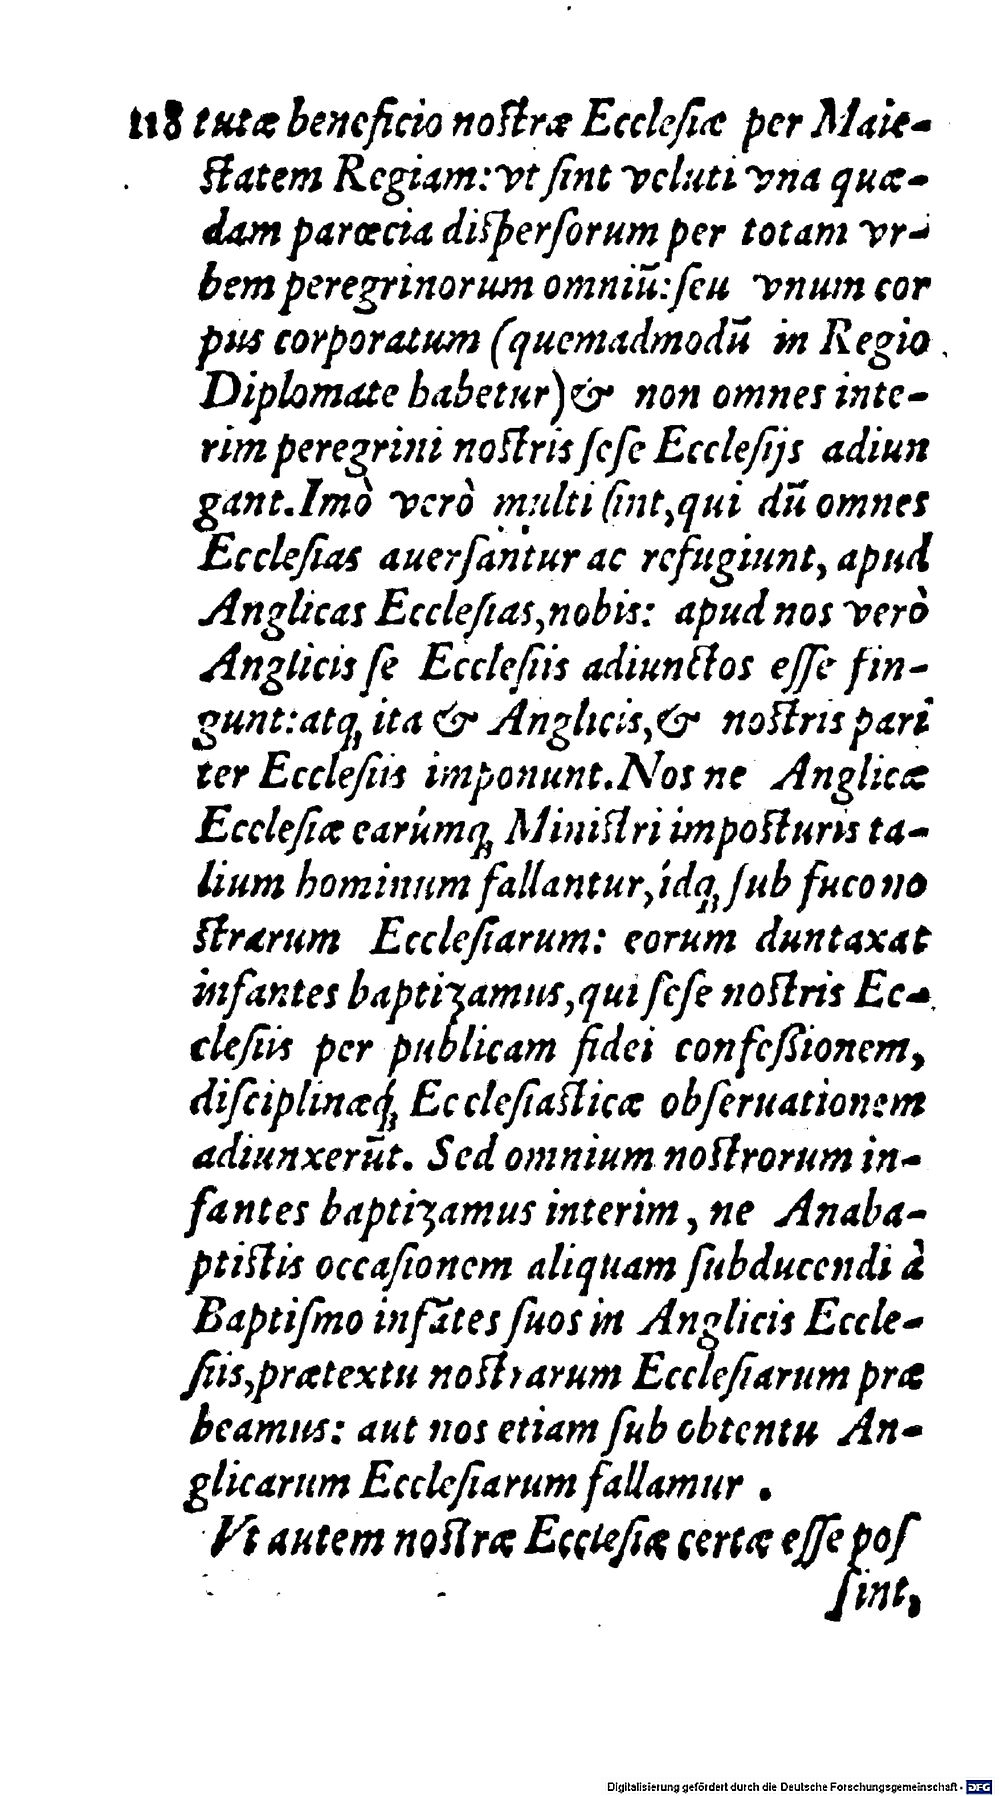 118 tutæ beneficio noſtræ Eccleſiæ per Maie-
ſtatem Regiam: vt ſint veluti vna quæ-
dam parœcia diſperſorum per totam vr-
bem peregrinorum omniū: ſeu vnum cor
pus corporatum (quemadmodū in Regio
Diplomate habetur) & non omnes inte-
rim peregrini noſtris ſeſe Eccleſijs adiun
gant. Imò verò multi ſint, qui dū omnes
Eccleſias auerſantur ac refugiunt, apud
Anglicas Eccleſias, nobis: apud nos verò
Anglicis ſe Eccleſiis adiunctos eſſe fin-
gunt: atq; ita & Anglicis, & noſtris pari
ter Eccleſiis imponunt. Nos ne Anglicæ
Eccleſiæ earúmq; Miniſtri impoſturis ta-
lium hominum fallantur, ídq; ſub fuco no
ſtrarum Eccleſiarum: eorum duntaxat
infantes baptizamus, qui ſeſe noſtris Ec-
cleſiis per publicam fidei confeſsionem,
diſciplinæq́; Eccleſiaſticæ obſeruationem
adiunxerūt. Sed omnium noſtrorum in-
fantes baptizamus interim, ne Anaba-
ptiſtis occaſionem aliquam ſubducendi à
Baptiſmo infātes ſuos in Anglicis Eccle-
ſiis, prætextu noſtrarum Eccleſiarum præ
beamus: aut nos etiam ſub obtentu An-
glicarum Eccleſiarum fallamur.
Vt autem noſtræ Eccleſiæ certæ eſſe poſ
ſint,
Digitalisierung gefördert durch die Deutsche Forschungsgemeinschaft - DFG